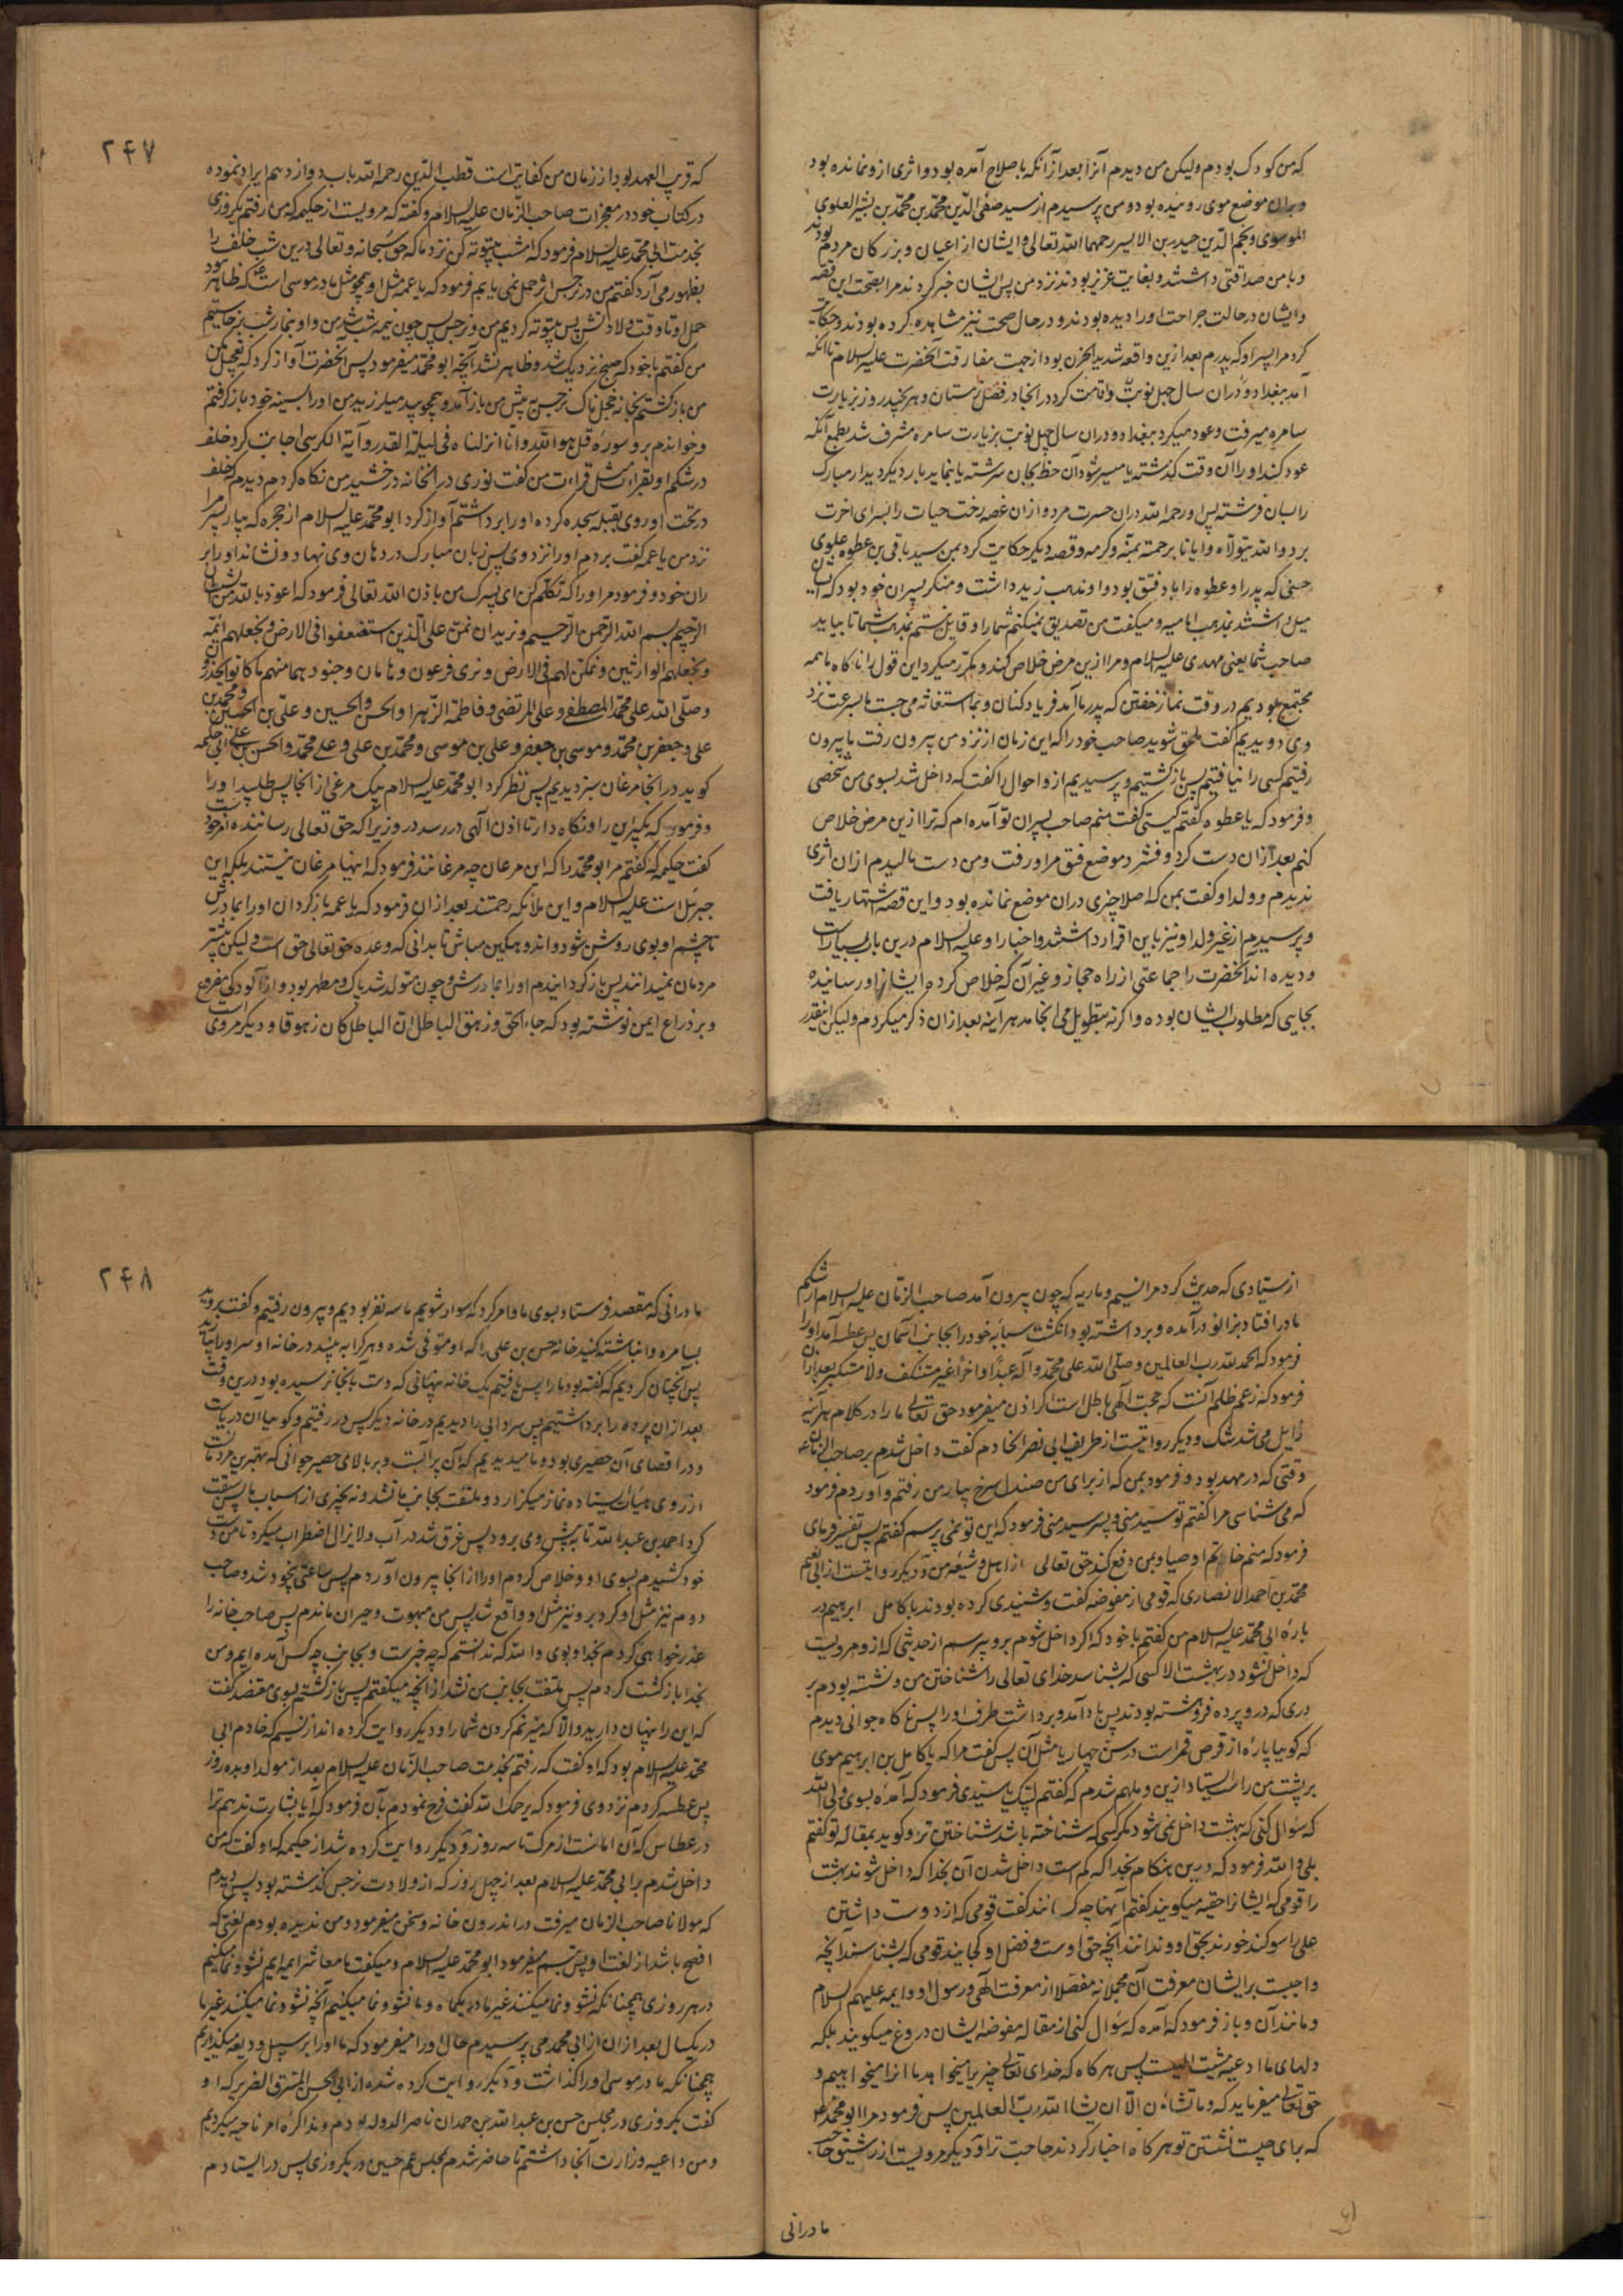 که من کودک بودم ولیکن من دیدم آنرا بعد از آنکه باصلاح آمده بود و اثری ازو نمانده بود
و بران موضع موی روئیده بود و من پرسیدم از سید صفی الدّین محمّد بن محمّد بن بشیر العلوی
الموسوی و نجم الدّین حیدر بن الایسر رحمهما الله تعالی و ایشان از اعیان و بزرکان مردم بودند
و با من صداقتی داشتند و بغایت عزیز بودند نزد من پس ایشان خبر کردند مرا بصحّت این قصّه
و ایشان در حالت جراحت او را دیده بودند و در حال صحت نیز مشاهده کرده بودند و حکایت
کرد مرا پسر او که پدرم بعد ازین واقعه شدید الحزن بود از جهت مفارقت آنحضرت علیه السلام تا آنکه
آمد ببغداد و دران سال چهل نوبت و اقامت کرد در انجا در فصل زمستان و هر چند روز بزیارت
سامره میرفت و عود میکرد ببغداد و دران سال چهل نوبت بزیارت سامره مشرف شد بطمع آنکه
عود کند او را آن وقت کذشته یا میسر شود آن حظ بجان سرشته یا بنماید بار دیکر دیدار مبارک
را بسان فرشته پس او رحمه الله دران حسرت مرد و ازان غصه رخت حیات را بسرای اخرت
برد والله یتولاه و ایانا برحمته بمنّه و کرمه و قصه دیکر حکایت کرد بمن سید باقی بن عطوه علوی
حسنی که پدر او عطوه را باد فتق بود و او مذهب زید داشت و منکر پسران خود بود که ایشان
میل داشتند بمذهب امامیه و میکفت من تصدیق نمیکنم شما را و قایل نستم بمذهب شما تا بیاید
صاحب شما یعنی مهدی علیه السلام و مرا ازین مرض خلاص کند و مکرّر میکرد این قول را ناکاه ما همه
مجتمع بودیم در وقت نماز خفتن که پدر ما آمد فریاد کنان و بما استغاثه می جست ما بسرعت نزد
وی دویدیم کفت ملحق شوید صاحب خود را که این زمان از نزد من بیرون رفت ما بیرون
رفتیم کسی را نیافتیم پس بازکشتیم و پرسیدیم ازو احوال را کفت که داخل شد بسوی من شخصی
و فرمود که یا عطوه کفتم کیستی کفت منم صاحب پسران تو آمده ام که ترا ازین مرض خلاص
کنم بعد ازان دست کرد و فشرد موضع فتق مرا و رفت و من دست مالیدم ازان اثری
ندیدم و ولد او کفت بمن که اصلا چیزی دران موضع نمانده بود و این قصه اشتهار یافت
و پرسیدم از غیر ولد او نیز باین اقرار داشتند و اخبار او علیه السلام درین باب بسیار است
و دیده اند آنحضرت را جماعتی از راه حجاز و غیر آن که خلاص کرده ایشانرا و رسانیده
بجایی که مطلوب ایشان بوده و اکر نه بتطویل می انجامد هر آینه بعد ازان ذکر میکردم ولیکن اینقدر
۲۴۷
که قریب العهد بود از زمان من کفایتست قطب الدّین رحمه الله باب دوازدهم ایراد نموده
در کتاب خود در معجزات صاحب الزّمان علیه السلام و کفته که مرویست از حکیمه که من رفتم یکروزی
بخدمت ابی محمد علیه السلام فرمود که امشب بیتوته کن نزد ما که حق سبحانه و تعالی درین شب خلف را
بظهور می آرد کفتم من در نرجس اثر حمل نمی یابم فرمود که یا عمه مثل او همچو مثل مادر موسی است که ظاهر نبود
حمل او تا وقت ولادتش پس بیتوته کردیم من و نرجس پس چون نیمه شب شد من و او بنماز شب برخاستیم
من کفتم با خود که صبح نزدیک شد و ظاهر نشد آنچه ابو محمّد میفرمود پس آنحضرت آواز کرد که تعجیل مکن
من بازکشتم بخانه خجل ناک نرجس به پیش من باز آمد و همچو بید میلرزید من او را بسینه خود باز کرفتم
و خواندم برو سوره قل هو الله و انا انزلناه فی لیلة القدر و آیة الکرسی اجابت کرد خلف
در شکم او بقراءت مثل قراءت من کفت نوری در آنخانه درخشید من نکاه کردم دیدم که خلف
در تحت او روی بقبله سجده کرده او را برداشتم آواز کرد ابو محمّد علیه السلام از حجره که بیار پسر مرا
نزد من یا عمه کفت بردم او را نزد وی پس زبان مبارک در دهان وی نهاد و نشاند او را بر
ران خود و فرمود مر او را که تکلّم کن ای پسرک من باذن الله تعالی فرمود که اعوذ بالله من الشیطان
الرّجیم بسم الله الرّحمن الرّحیم و نرید ان نمنّ علی الّذین استضعفوا فی الارض و نجعلهم ائمّة
و نجعلهم الوارثین و نمکّن لهم فی الارض و نری فرعون و هامان و جنودهما منهم ما کانوا یحذرون
و صلّی الله علی محمّد المصطفی و علی المرتضی و فاطمة الزّهرا و الحسن و الحسین و علی بن الحسین و محمد بن
علی و جعفر بن محمّد و موسی بن جعفر و علی بن موسی و محمّد بن علی و علی محمّد و الحسن بن علی ابی حکیمه
کوید در انجا مرغان سبز دیدیم پس نظر کرد ابو محمّد علیه السلام بیک مرغی از انجا پس طلبید او را
و فرمود که بکیر این را و نکاه دار تا اذن الهی در رسد در وزیرا که حق تعالی رساننده امر خودست
کفت حکیمه که کفتم مر ابو محمّد را که این مرغان چه مرغانند فرمود که اینها مرغان نیستند بلکه این
جبرئیل است علیه السلام و این ملائکه رحمتند بعد ازان فرمود که یا عمه بازکردان او را بمادرش
تا چشم او بوی روشن شود و اندوهکین مباش تا بدانی که وعده حق تعالی حق است ولیکن بیشتر
مردمان نمیدانند پس بازکردانیدم او را بمادرش و چون متولد شد پاک و مطهر بود و از آلودکی مفروغ
و بر ذراع ایمن نوشته بود که جاء الحق و زهق الباطل ان الباطل کان زهوقا و دیکر مروی است
از ستیادی که حدیث کرد مرا نسیم و ماریه که چون بیرون آمد صاحب الزّمان علیه السلام از شکم
مادر افتاد بزانو درآمده و برداشته بود انکشت سبابه خود را بجانب آسمان پس عطسه آمد او را
فرمود که الحمد لله رب العالمین و صلّی الله علی محمّد و آله عبدًا داخرًا غیر مستنکف ولا مستکبر بعد ازان
فرمود که زعم ظلمه آنست که حجت الهی باطل است اکر اذن میفرمود حق تعالی ما را در کلام هر آینه
زایل می شد شک و دیکر روایتست از طریف ابی نصر الخادم کفت داخل شدم بر صاحب الزمان ع
وقتی که در مهد بود و فرمود بمن که از برای من صندل سرخ بیار من رفتم و آوردم فرمود
که می شناسی مرا کفتم تو سید منی و پسر سید منی فرمود که این تو نمی پرسم کفتم پس تفسیر فرمای
فرمود که منم خاتم اوصیا و بمن دفع کند حق تعالی از اهل و شیعه من و دیکر روایتست از ابی نعیم
محمّد بن احمد الانصاری که قومی از مفوضه کفت و شنیدی کرده بودند با کامل ابرهیم در
بارهٔ ابی محمّد علیه السلام من کفتم با خود که اکر داخل شوم برو بپرسم از حدیثی که ازو مرویست
که داخل نشود در بهشت الا کسی که بشناسد خدای تعالی را شناختن من و نشسته بودم بر
دری که درو پرده فروهشته بودند پس باد آمد و برداشت طرف او را پس ناکاه جوانی دیدم
که کویا پاره از قرص قمر است در سن چهار یا مثل آن پس کفت مرا که یا کامل بن ابرهیم موی
بر پشت من راست ایستاد ازین و ملهم شدم که کفتم لبیک یا سیدی فرمود که آمدهٔ بسوی ولی الله
که سؤال کنی که ببهشت داخل نمی شود مکر کسی که شناخته باشد شناختن تو و کوید بمقاله تو کفتم
بلی والله فرمود که درین هنکام بخدا که کم است داخل شدن آن بخدا که داخل شوند بهشت
را قومی که ایشانرا حقیه میکویند کفتم آنها چه کسانند کفت قومی که از دوست داشتن
علی را سوکند خورند بحق او و ندانند آنچه حق اوست و فضل او کجایند قومی که بشناسند آنچه
واجبست بر ایشان معرفت آن مجملا نه مفصلا از معرفت الهی و رسول او و ایمه علیهم السلام
و مانند آن و باز فرمود که آمده که سؤال کنی از مقاله مفوضه ایشان دروغ میکویند بلکه
دلهای ما اوعیه مشیت الهیست پس هر کاه که خدای تعالی چیزی را میخواهد ما انرا میخواهیم و
حق تعالی میفرماید که وما تشاءون الّا ان یشاء الله ربّ العالمین پس فرمود مرا ابو محمّد ع
که برای چیست نشستن تو هر کاه اخبار کردند حاجت ترا و دیکر مرویست از رشیق حاجب
مادرانی
۲۴۸
مادرانی که مقصد فرستاد بسوی ما و امر کرد که سوار شویم ما سه نفر بودیم و بیرون رفتیم و کفت بروید
بسامره و انباشته کنید خانه حسن بن علی را که او متوفی شده و هر کرا ببینید در خانه او سر او را بیارید
پس آنچنان کردیم که کفته بود ما را پس یافتیم یک خانه پنهانی که دست بآنجا نرسیده بود درین وقت
بعد ازان پرده را برداشتیم پس سردابی را دیدیم در خانه دیکر پس در رفتیم و کویا آن دریاست
و در اقصای آن حصیری بود و ما میدیدیم که آن بر آبست و بر بالای حصیر جوانی که بهترین مردمانست
از روی هیئات ایستاده نماز میکزارد و ملتفت بجانب ما نشد و نه بچیزی از اسباب ما پس سبقت
کرد احمد بن عبدالله تا به پیش وی برود پس غرق شد در آب و لایزال اضطراب میکرد تا من دست
خود کشیدم بسوی او و خلاص کردم او را از انجا بیرون آوردم پس ساعتی بیخود شد و صاحب
دوم نیز مثل او کرد برو نیز مثل او واقع شد پس من مبهوت و حیران ماندم پس صاحب خانه را
عذرخواهی کردم بخدا و بوی والله که ندانستم که چه خبرست و بجانب چه کس آمده ایم و من
بخدا بازکشت کردم پس ملتفت بجانب من نشد از آنچه میکفتم پس بازکشتم بسوی مقتصد کفت
که این را پنهان دارید والّا که میزنم کردن شما را و دیکر روایت کرده اند از نسیم که خادم ابی
محمّد علیه السلام بود که او کفت که رفتم بخدمت صاحب الزّمان علیه السلام بعد از مولد او بده روز
پس عطسه کردم نزد وی فرمود که یرحمک الله کفت فرح نمودم بآن فرمود که آیا بشارت ندهم ترا
در عطاس که آن امانست از مرک تا سه روز و دیکر روایت کرده شد از حکیمه که او کفت که من
داخل شدم بر ابی محمّد علیه السلام بعد از چهل روز که از ولادت نرجس کذشته بود پس دیدم
که مولانا صاحب الزمان میرفت در اندرون خانه و سخن میفرمود و من ندیده بودم لغتی که
افصح باشد از لغت او پس تبسم میفرمود ابو محمّد علیه السلام و میکفت ما معاشر ایمه ایم نشو و نما میکنیم
در هر روزی همچنانکه نشو و نما میکنند غیر ما در یکماه و ما نشو و نما میکنیم آنچه نشو و نما میکنند غیر ما
در یکسال بعد ازان از ابی محمد می پرسیدم حال او را میفرمود که ما او را بر سبیل ودیعه میکذاریم
همچنانکه مادر موسی او را کذاشت و دیکر روایت کرده شده از ابی الحسن المسترق الضریر که او
کفت یکروزی در مجلس حسن بن عبدالله بن حمدان ناصر الدوله بودم و مذاکرهٔ امر ناحیه میکردیم
و من داعیه وزارت آنجا داشتم تا حاضر شدم مجلس عم حسین در یکروزی پس در ایستادم